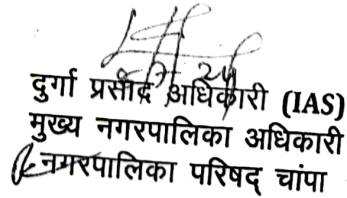 दुर्गा प्रसाद अधिकारी (IAS)
मुख्य नगरपालिका अधिकारी
नगरपालिका परिषद् चांपा